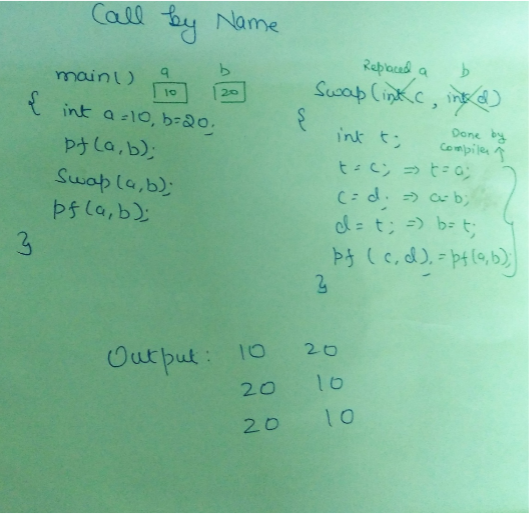 Call by Name
main() a b
10 20
{ int a=10, b=20;
pf(a,b);
Swap(a,b);
pf(a,b);
}
Replaced a b
Swap(int c, int d)
{
int t; Done by
Compiler ↑
t = c; ⇒ t = a;
c = d; ⇒ a = b;
d = t; ⇒ b = t;
pf (c,d); = pf(a,b);
}
Output: 10 20
20 10
20 10